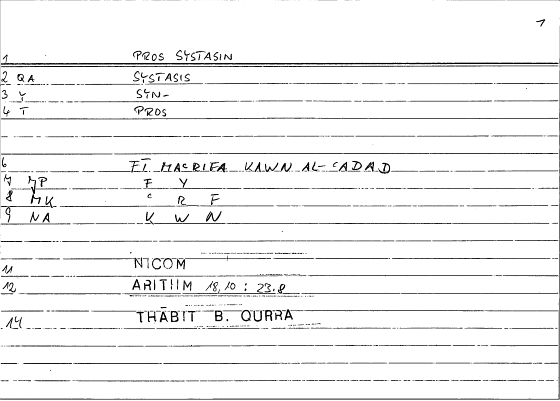 1
1 PROS SYSTASIN
2 QA SYSTASIS
3 Y SYN-
4 T PROS
6 FĪ MAʿRIFA KAWN AL-ʿADAD
7 JP F Y
8 MK ʿ R F
9 NA K W N
11 NICOM
12 ARITHM 18,10 : 23.8
14 THĀBIT B. QURRA